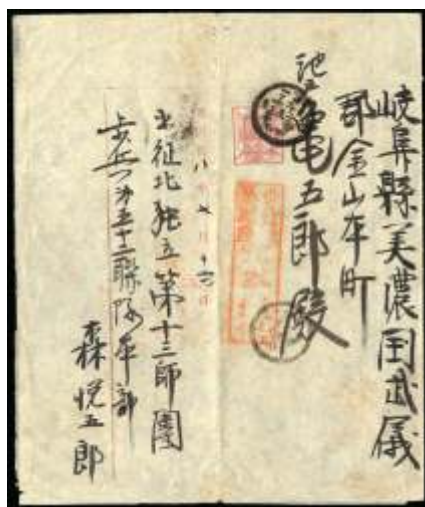 岐阜縣美濃国武儀
郡金山本町
池 亀五郎殿
八 年 七 月 十 日
出征北独立第十三師團
歩兵第五十二聯隊本部
森悦五郎